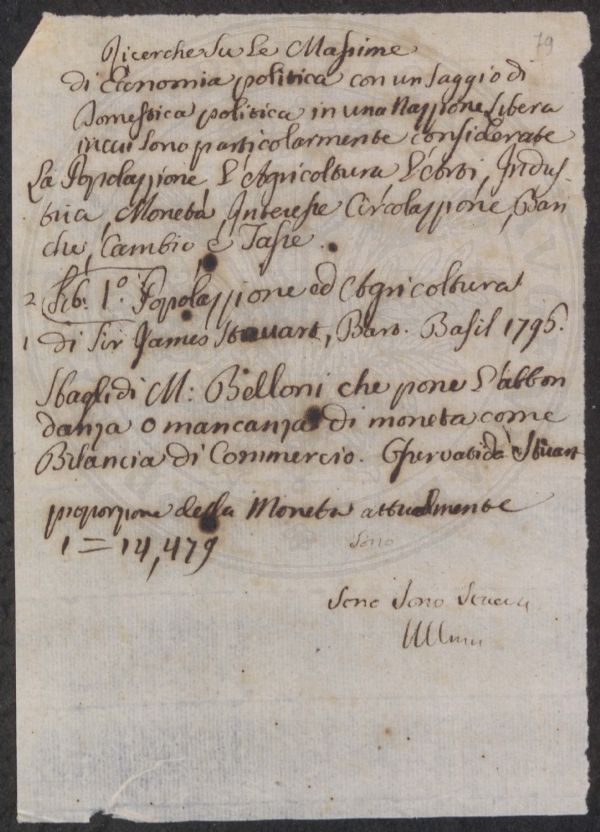 79
Ricerche Su Le Massime
di Economia politica con un Saggio di
Domestica politica in una Nazzione Libera
in cui Sono particolarmente considerate
La Popolazzione, L'Agricoltura L'Arti, Indus-
tria, Moneta, Interesse Circolazzione, Ban
che, Cambio e Tasse.
2 Lib. 1º. Popolazzione ed Agricoltura
1 di Sir James Steuart, Baro. Basil 1796.
Sbagli di M: Belloni che pone L'abbon
danza o mancanza di moneta come
Bilancia di Commercio. Osservati da Stuart
proporzione della Moneta attualmente
1 = 14,479
sono
Sono Sono